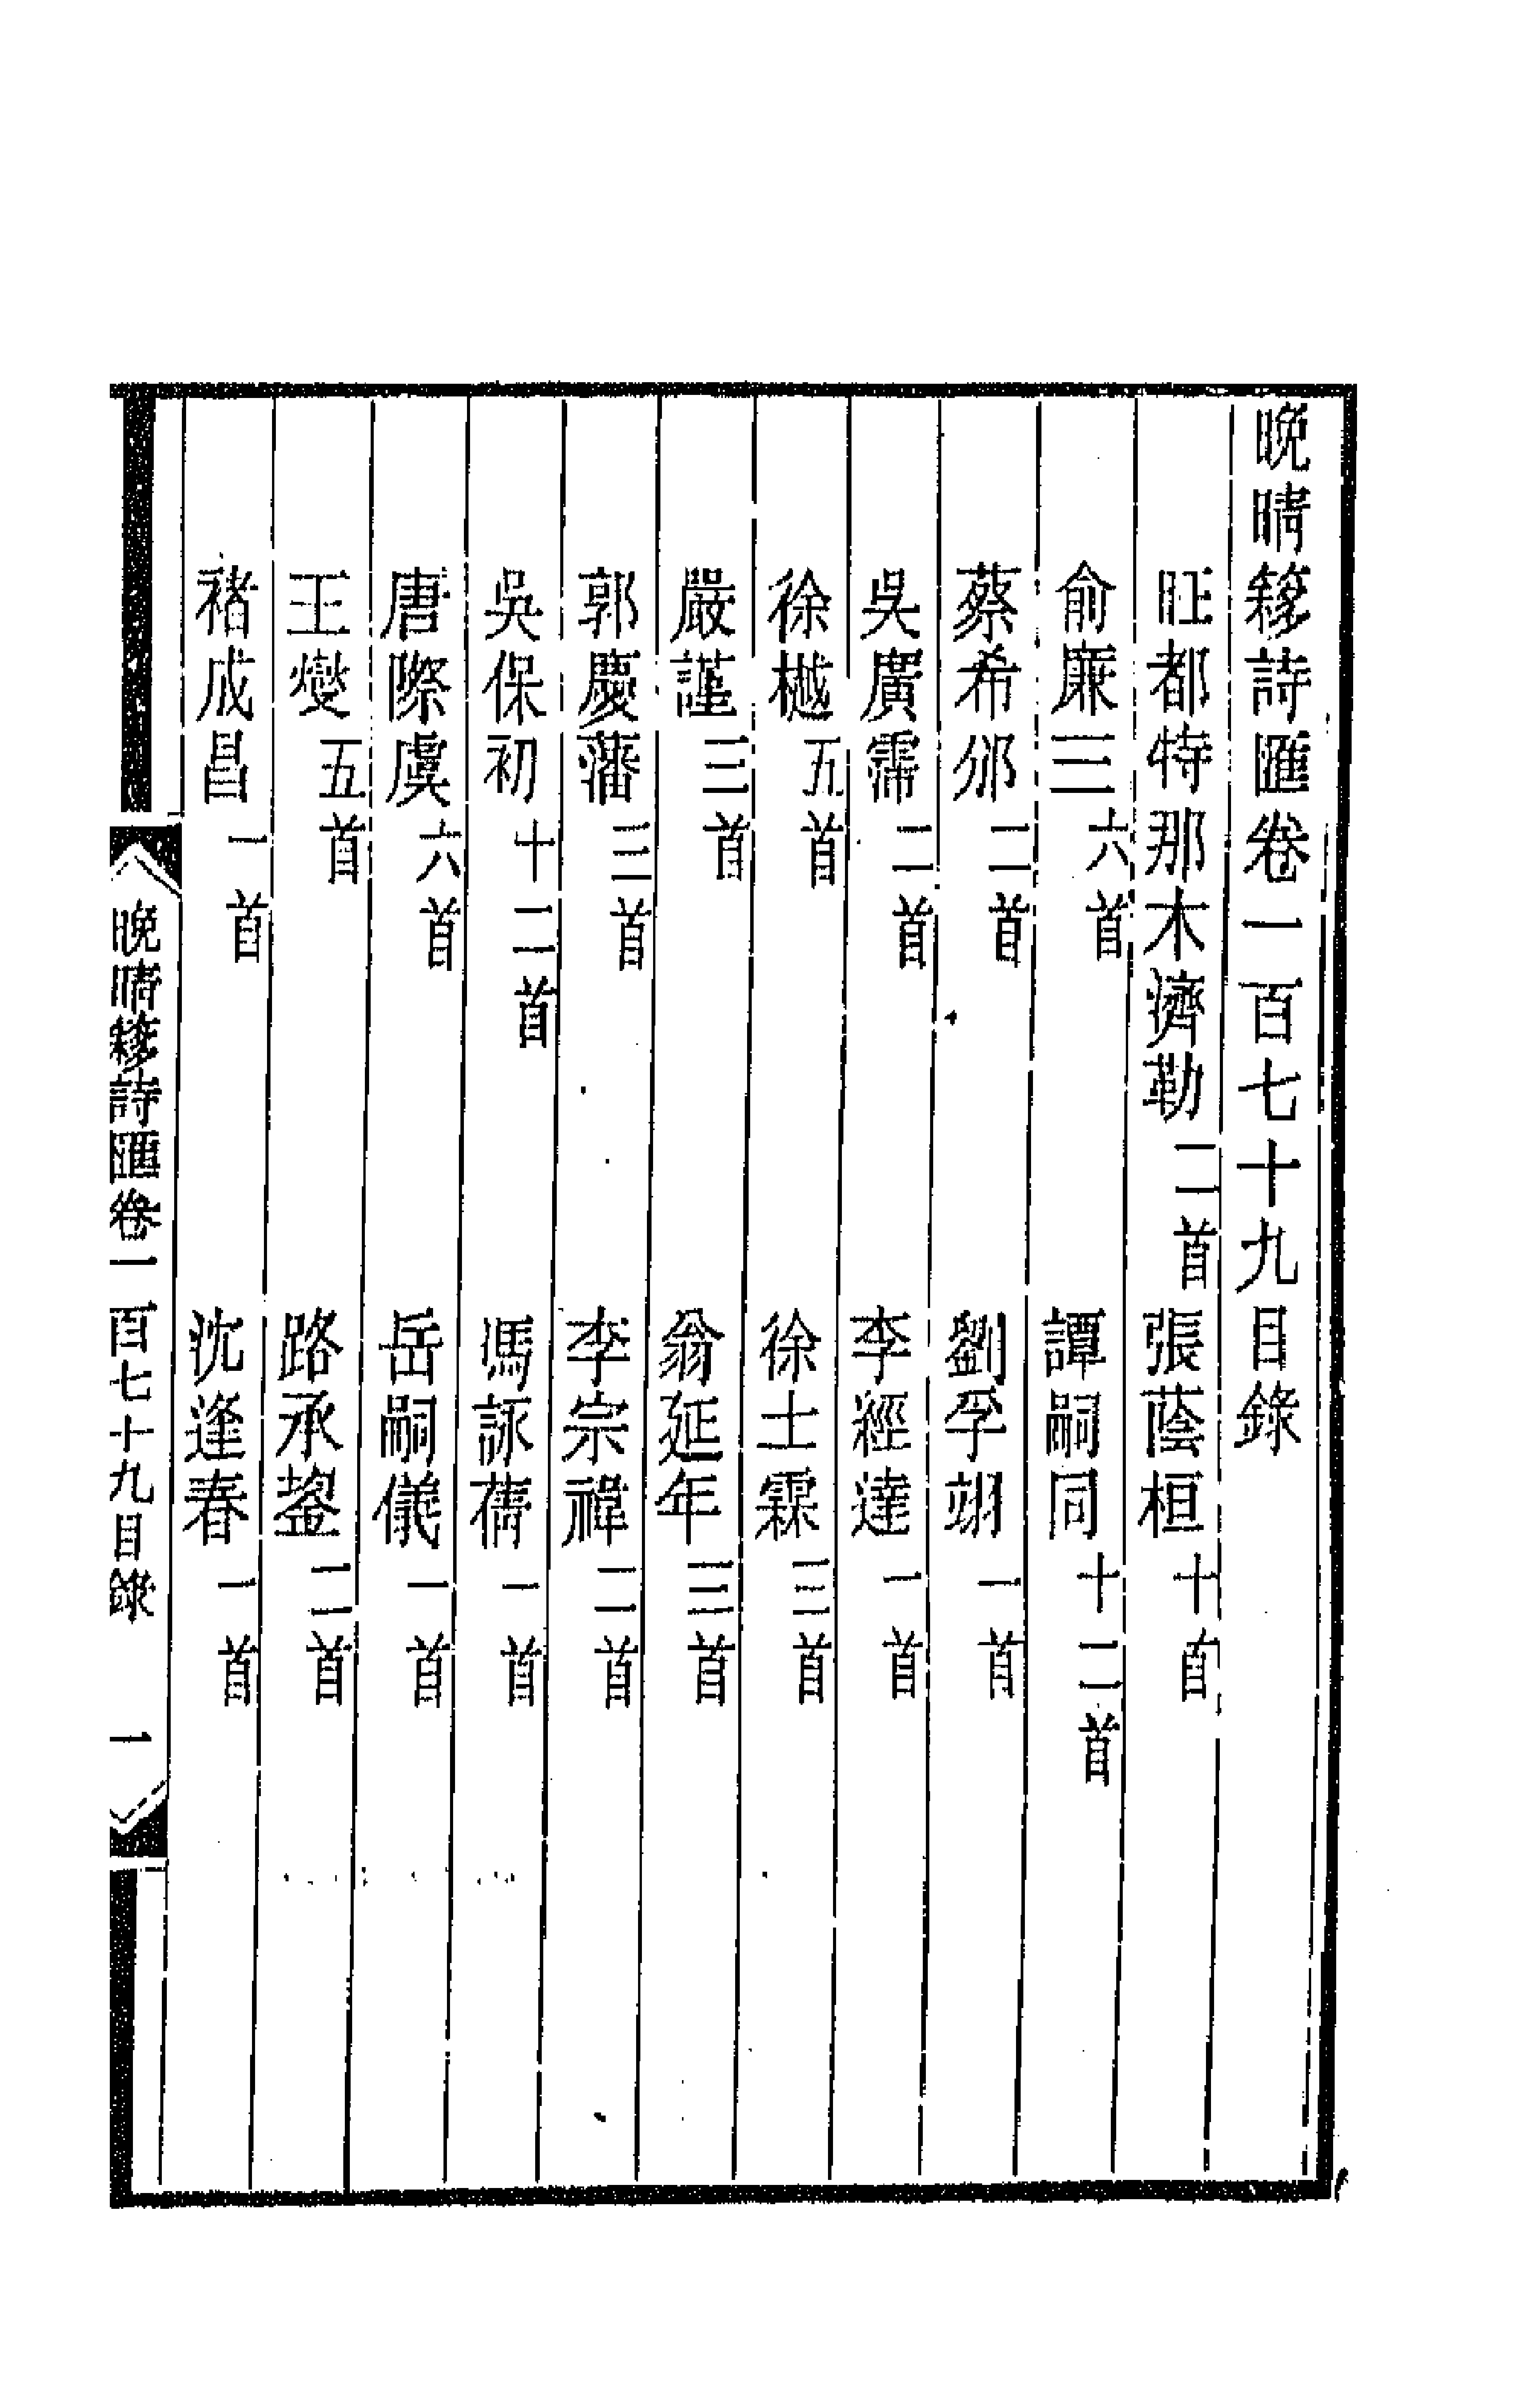 晚晴簃詩匯卷一百七十九目錄
旺都特那木濟勒二首 張蔭桓十首
俞廉三六首 譚嗣同十二首
蔡希邠二首 劉孚翊一首
吳廣霈二首 李經達一首
徐樾五首 徐士霖三首
嚴謹三首 翁延年三首
郭慶藩三首 李宗禕二首
吳保初十二首 馮詠蒨一首
唐際虞六首 岳嗣儀一首
王燮五首 路承鋆二首
褚成昌一首 沈逢春一首
晚晴簃詩匯卷一百七十九目錄 一